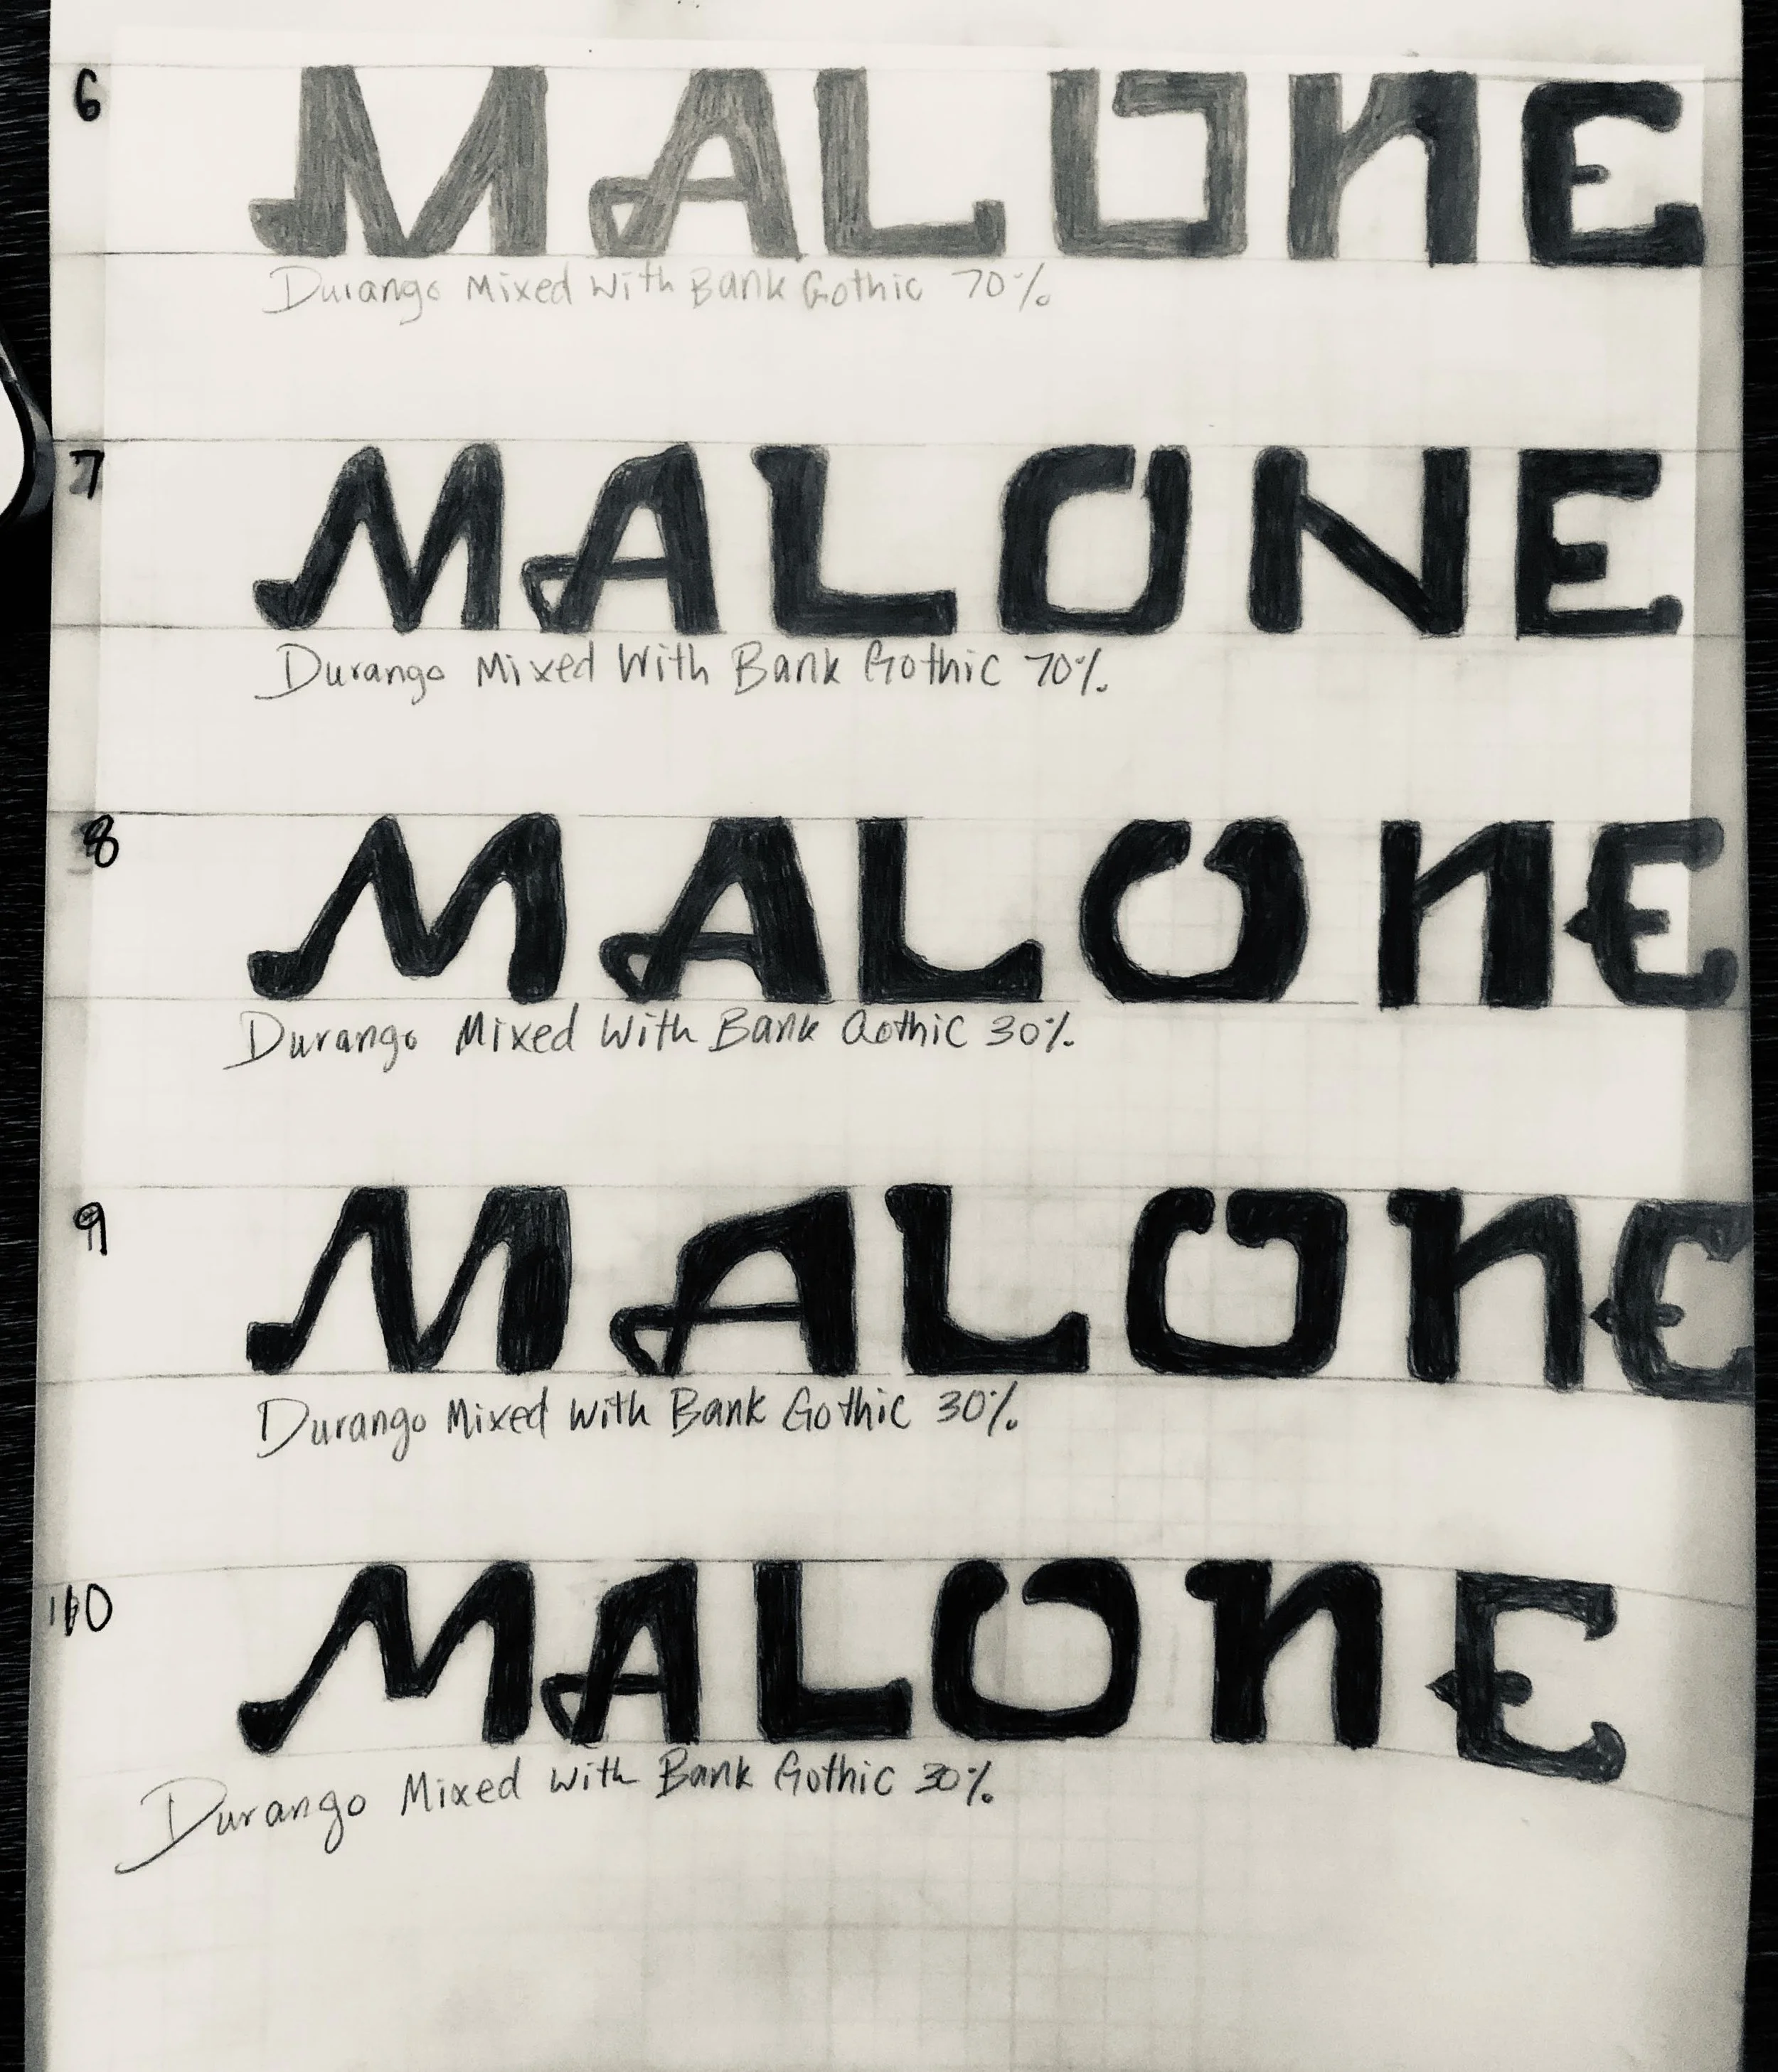 6 MALOnE
Durango Mixed With Bank Gothic 70%
7 MALONE
Durango Mixed With Bank Gothic 70%
8 MALOnE
Durango Mixed With Bank Gothic 30%
9 MALOnE
Durango Mixed With Bank Gothic 30%
10 MALOnE
Durango Mixed With Bank Gothic 30%